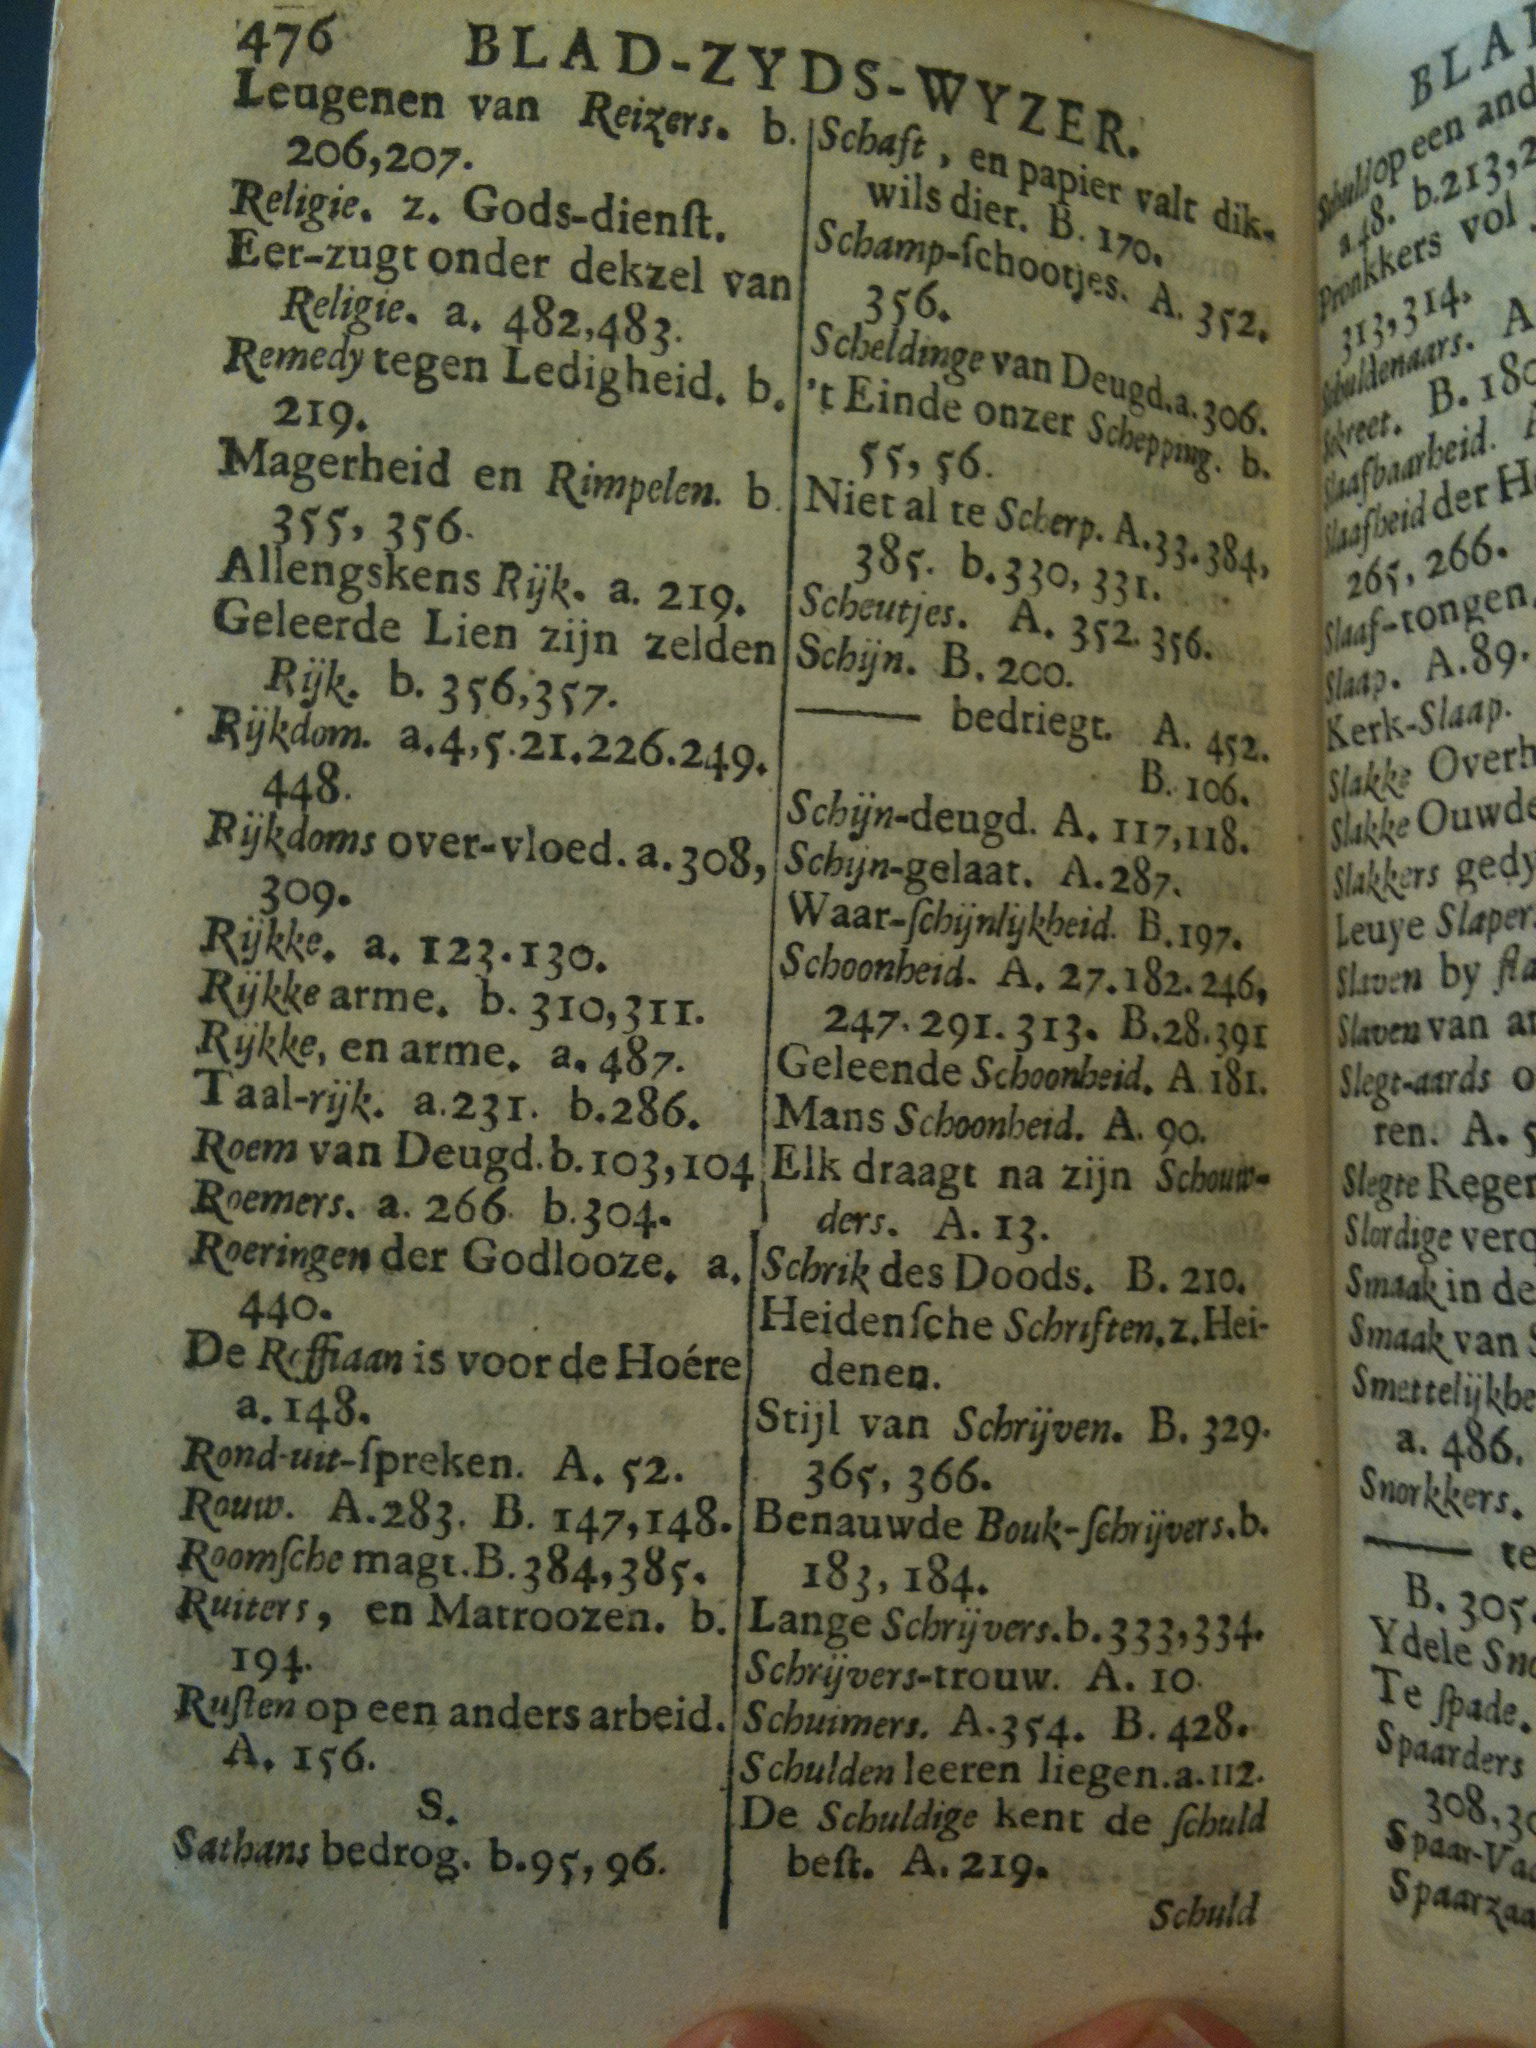 476 BLAD-ZYDS-WYZER.
Leugenen van Reizers. b.
206,207.
Religie. z. Gods-dienſt.
Eer-zugt onder dekzel van
Religie. a. 482,483.
Remedy tegen Ledigheid. b.
219.
Magerheid en Rimpelen. b.
355, 356.
Allengskens Rijk. a. 219.
Geleerde Lien zijn zelden
Rijk. b. 356,357.
Rijkdom. a.4,5.21.226.249.
448.
Rijkdoms over-vloed. a.308,
309.
Rijkke. a. 123.130.
Rijkke arme. b. 310,311.
Rijkke, en arme. a. 487.
Taal-rijk. a.231. b.286.
Roem van Deugd.b.103,104
Roemers. a. 266. b.304.
Roeringen der Godlooze. a.
440.
De Roffiaan is voor de Hoére
a. 148.
Rond-uit-ſpreken. A. 52.
Rouw. A.283. B. 147,148.
Roomſche magt.B.384,385.
Ruiters, en Matroozen. b.
194.
Ruſten op een anders arbeid.
A. 156.
S.
Sathans bedrog. b.95,96.
Schaft, en papier valt dik-
wils dier. B. 170.
Schamp-ſchootjes. A. 352.
356.
Scheldinge van Deugd.a.306.
't Einde onzer Schepping. b.
55, 56.
Niet al te Scherp. A.33.384,
385. b.330, 331.
Scheutjes. A. 352. 356.
Schijn. B. 200.
—— bedriegt. A. 452.
B. 106.
Schijn-deugd. A. 117,118.
Schijn-gelaat. A.287.
Waar-ſchijnlijkheid. B.197.
Schoonheid. A. 27.182.246,
247. 291. 313. B.28.391
Geleende Schoonheid. A 181.
Mans Schoonheid. A. 90.
Elk draagt na zijn Schouw-
ders. A. 13.
Schrik des Doods. B. 210.
Heidenſche Schriften.z.Hei-
denen.
Stijl van Schrijven. B. 329.
365, 366.
Benauwde Bouk-ſchrijvers.b.
183, 184.
Lange Schrijvers.b.333,334.
Schrijvers-trouw. A. 10.
Schuimers. A.354. B. 428.
Schulden leeren liegen.a.112.
De Schuldige kent de ſchuld
beſt. A. 219.
Schuld
op een
a.48. b.213,
Pronkkers vol
313,314.
Schuldenaars. A
Sekreet. B. 180
Slaafbaarheid.
Slaafheid der
265, 266.
Slaaf-tongen.
Slaap. A.89.
Kerk-Slaap.
Slakke
Slakke
Slakkers
Leuye
Slaven by
Slaven van
Slegt-aards
ren. A. 5
Slegte
Slordige
Smaak in de
Smaak van
a. 486.
Snorkkers.
——
B. 305.
Ydele
Te ſpade.
Spaarders
308,